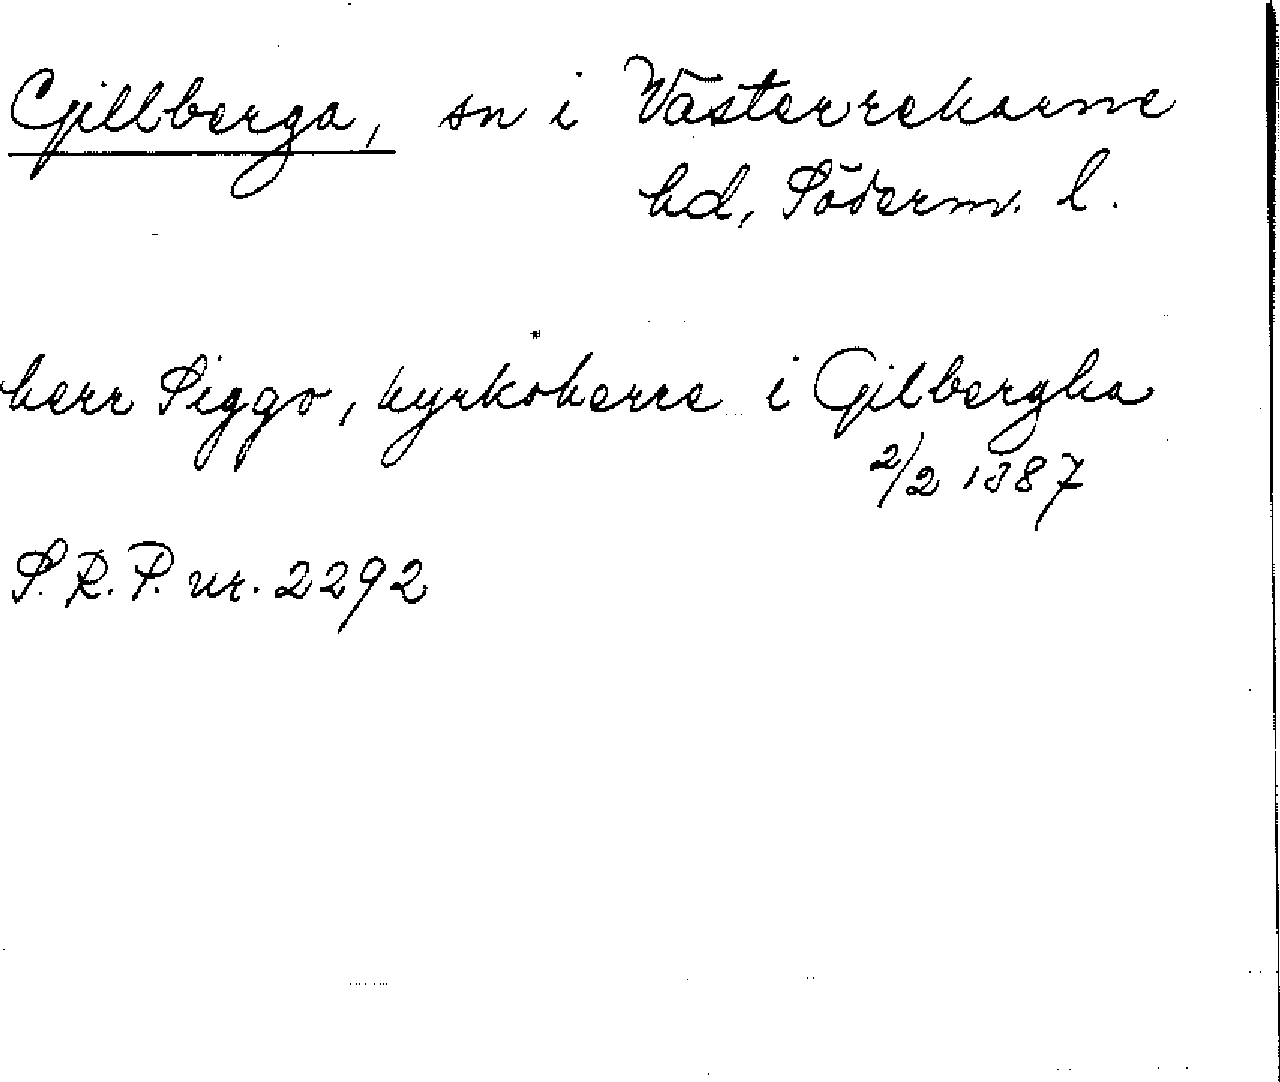 Gillberga, sn i Västerrekarne
hd, Söderm. l.
herr Siggo, kyrkoherre i Gilbergha
2/2 1387
S.R.P. nr. 2292